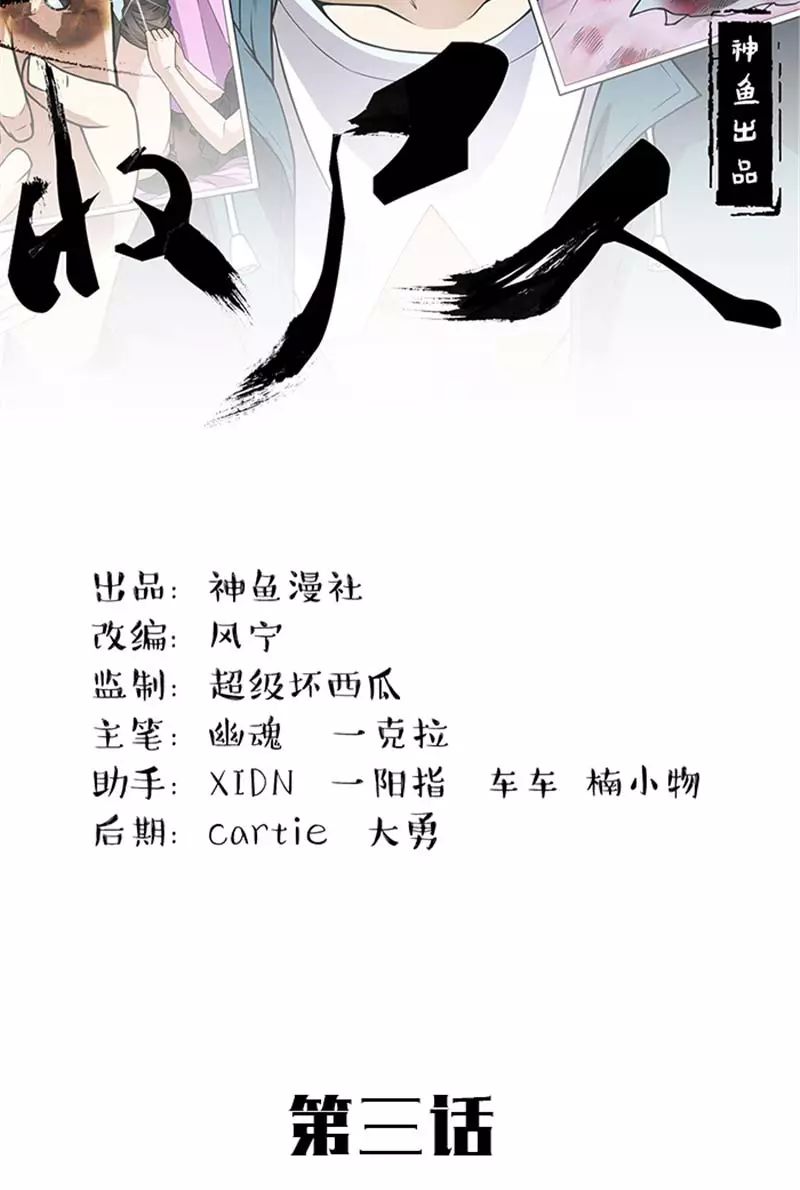 神鱼出品
收尸人
出品: 神鱼漫社
改编: 风宁
监制: 超级坏西瓜
主笔: 幽魂 一克拉
助手: XIDN 一阳指 车车 楠小物
后期: cartie 大勇
第三话